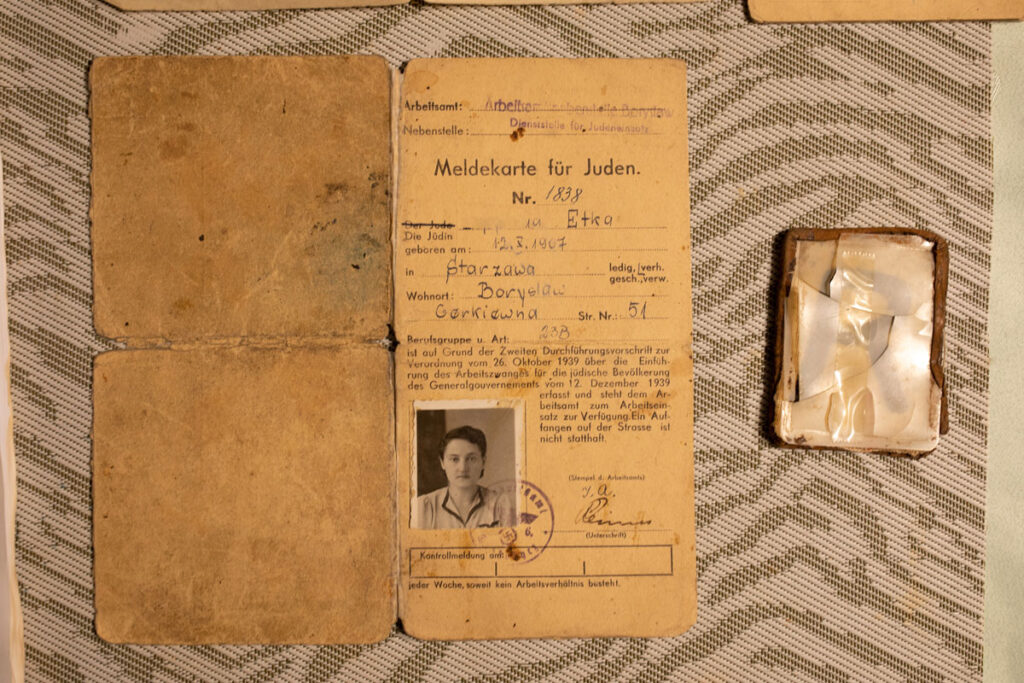 Arbeitsamt: Boryslaw
Nebenstelle: Dienststelle für Judeneinsatz
Meldekarte für Juden.
Nr. 1838
Der Jude Etka
Die Jüdin
geboren am: 12. X. 1907
in Starzawa ledig, verh.
gesch., verw.
Wohnort: Boryslaw
Str. Nr.: 51
Berufsgruppe u. Art: 23B
ist auf Grund der Zweiten Durchführungsvorschrift zur
Verordnung vom 26. Oktober 1939 über die Einfüh-
rung des Arbeitszwanges für die jüdische Bevölkerung
des Generalgouvernements vom 12. Dezember 1939
erfasst und steht dem Ar-
beitsamt zum Arbeitsein-
satz zur Verfügung. Ein Auf-
fangen auf der Strasse ist
nicht statthaft.
(Stempel d. Arbeitsamts)
J. A.
(Unterschrift)
Kontrollmeldung am:
jeder Woche, soweit kein Arbeitsverhältnis besteht.